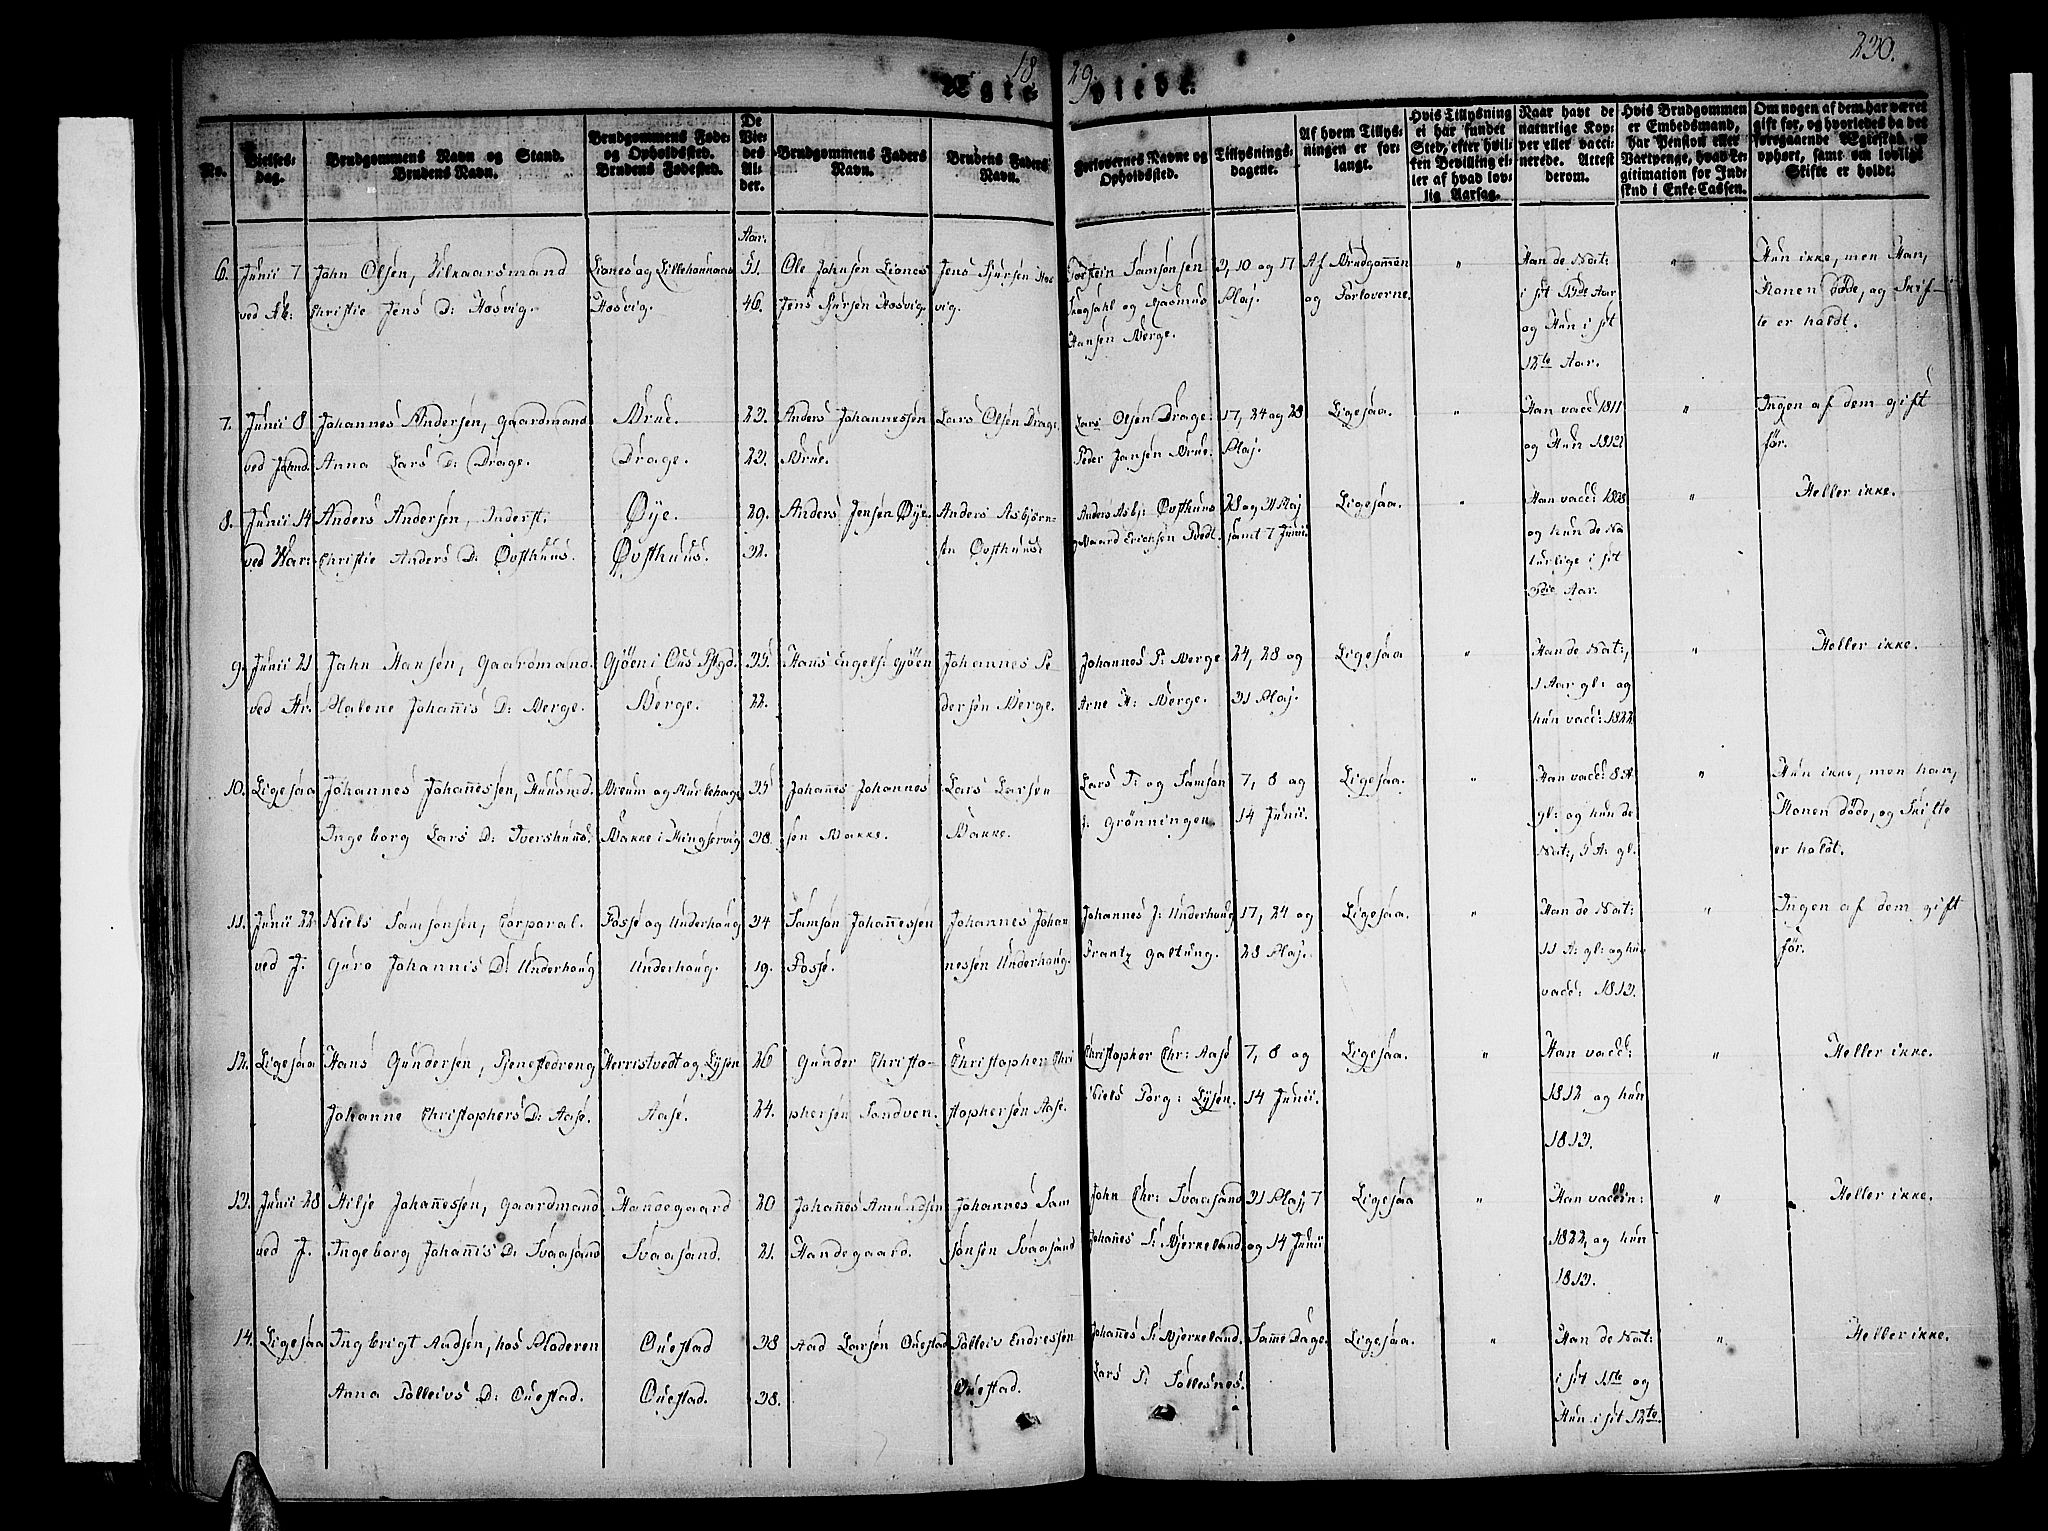 1829.
230.
Ægteviede.
No.
Vielses-
dag.
Brudgommens Navn og Stand.
Brudens Navn.
Brudgommens Føde-
og Opholdssted.
Brudens Fødested.
De
Vie-
des
Al-
der.
Brudgommens Faders
Navn.
Brudens Faders
Navn.
Forlovernes Navne og
Opholdssted.
Tillysnings-
dagene.
Af hvem Tillys-
ningen er for-
langt.
Hvis Tillysning
ei har fundet
Sted, efter hvil-
ken Bevilling el-
ler af hvad lov-
lig Aarsag.
Naar havt de
naturlige Kop-
per eller vacci-
nerede. Attest
derom.
Hvis Brudgommen
er Embedsmand,
har Pension eller
Vartpenge, hvad Le-
gitimation for Ind-
skud i Enke-Cassen.
Om nogen af dem har været
gift før, og hvorledes da det
foregaaende Ægteskab er
ophørt, samt om lovligt
Skifte er holdt.
6.
Junii 7
ved
John Olsen, Vilkaarsmand
Christie Jens D: Hosvig.
Liones og
Hosvig.
Aar.
51.
46.
Ole Johnsen Liones
Jens Siursen Hosvig
Jens Siursen Hos
vig.
Torstein Samsonsen
og Rasmus
Hansen Berge.
3, 10 og 17
Maj.
Af Brudgommen
og Forloverne.
"
Han de Nat:
i sit Aar
og Hun i sit
12te Aar.
"
Hun ikke, men Han,
Konen døde, og Skif-
te er holdt.
7.
Junii 8
ved Johnd.
Johannes Andersen, Gaardmand
Anna Lars D: Drage.
Brue.
Drage.
23.
23.
Anders Johannessen
Brue.
Lars Olsen Drage.
Lars Olsen Drage.
Peder Jansen Brue.
17, 24 og 28
Maj.
Ligesaa.
"
Han vacc: 1811
og Hun 1813
"
Ingen af dem gift
før.
8.
Junii 14
ved Har:
Anders Andersen, Inderst.
Christie Anders D: Øvsthuus.
Øye.
Øvsthuus.
29.
32.
Anders Jensen Øye
Anders Asbjörn-
sen Øvsthuus
Anders Asbj: Øvsthuus
og Baard Erichsen Tvedt.
28 og 31 Maj
samt 7 Junii.
Ligesaa.
"
Han vacc: 1808
og hun de Na
turlige i sit
Aar.
"
Heller ikke.
9.
Junii 21
ved Ar.
John Hansen, Gaardmand.
Malene Johañis D: Berge.
Gjøen i Ous Pstgd.
Berge.
35.
22.
Hans Engels: Gjøen
Johannes Pe
dersen Berge.
Johannes P: Berge
Arne H: Berge.
24, 28 og
31 Maj.
Ligesaa
"
Han de Nat:,
1 Aar gl: og
hun vacc: 1822
"
Heller ikke.
10.
Ligesaa
Johannes Johañessen, Huusmd.
Ingeborg Lars D: Ivershuus.
Breum og Murkehauge
Bakke i Kingservig
35
38.
Johañes Johannes
sen Bakke.
Lars Larsen
Bakke.
Lars J: og Samson
J. Grønningen.
7, 8 og
14 Junii.
Ligesaa.
"
Han vacc: 8 A
gl: og hun de
Nat:, 5 A: gl.
"
Hun ikke, men han,
Konen døde, og Skifte
er holdt.
11.
Junii 22
ved J.
Niels Samsonsen, Corporal.
Guro Johannis D: Underhoug
Fosse og Underhoug
Underhoug.
34
19.
Samson Johañessen
Fosse.
Johannes Johan
nessen Underhoug.
Johannes J: Underhoug
Frantz Galtung.
17, 24 og
28 Maj.
Ligesaa.
"
Han de Nat:
11 A: gl: og hun
vacc: 1813.
"
Ingen af dem gift
før.
12.
Ligesaa
Hans Gundersen, Tjenestedreng
Johanne Christophers D: Aase.
Herristvedt og Lysen
Aase.
26
24.
Gunder Christo-
phersen Sandven.
Christopher Chri
stophersen Aase.
Christopher Chr: Aase
Niels Torg: Lysen.
7, 8 og
14 Junii.
Ligesaa.
"
Han vacc:
1812 og hun
1813.
"
Heller ikke.
13.
Junii 28
ved J.
Hilje Johañessen, Gaardmand
Ingeborg Johañis D: Svaasand
Handegaard
Svaasand.
20
21.
Johañes Amundsen
Handegaard.
Johannes Sam
sonsen Svaasand
John Chr: Svaasand
Johañes S: Bjerkeland
31 Maj, 7
og 14 Junii
Ligesaa
"
Han vaccin:
1822, og hun
1813.
"
Heller ikke.
14.
Ligesaa
Ingbrigt Aadsen, hos Moderen
Anna Tolleivs D: Ouestad.
Ouestad
Ouestad.
38
38.
Aad Larsen Ouestad
Tolleiv Endressen
Ouestad.
Johañes S: Bjerkeland.
Lars P: Tollesnes.
Samme Dage.
Ligesaa.
"
Han de Nat:
i sit og
Hun i sit 12te.
"
Heller ikke.